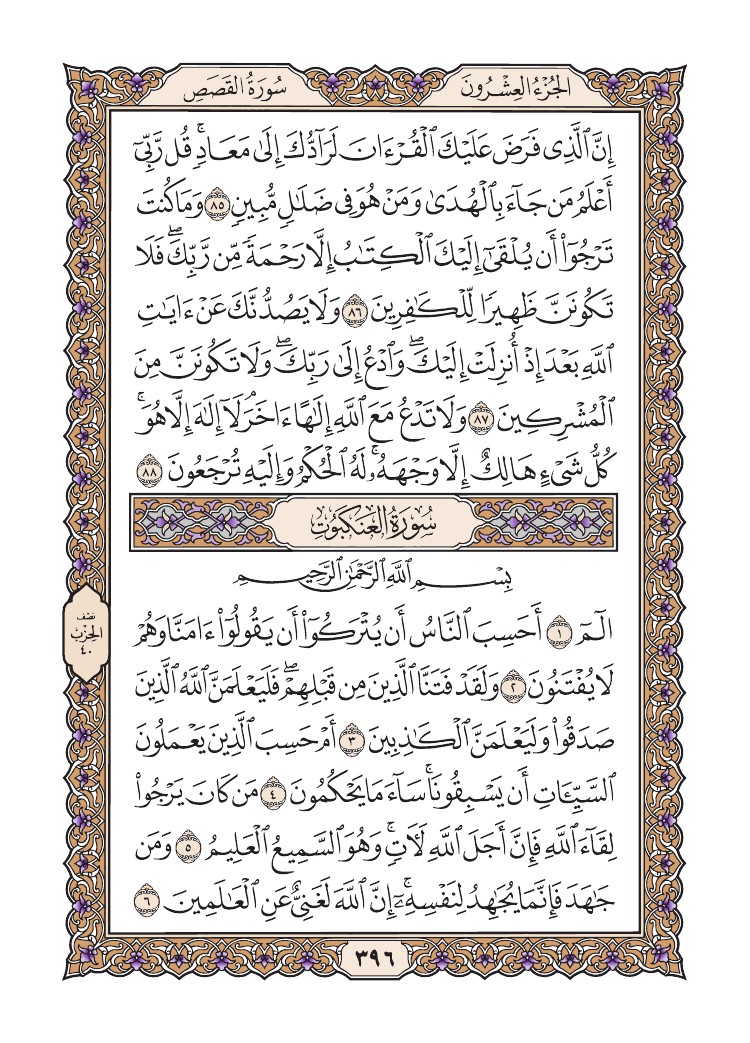 الجُزْءُ العِشْرُونَ
سُورَةُ القَصَصِ
إِنَّ ٱلَّذِى فَرَضَ عَلَيْكَ ٱلْقُرْءَانَ لَرَآدُّكَ إِلَىٰ مَعَادٍۚ قُل رَّبِّىٓ
أَعْلَمُ مَن جَآءَ بِٱلْهُدَىٰ وَمَنْ هُوَ فِى ضَلَٰلٍ مُّبِينٍ ٨٥ وَمَا كُنتَ
تَرْجُوٓا۟ أَن يُلْقَىٰٓ إِلَيْكَ ٱلْكِتَٰبُ إِلَّا رَحْمَةً مِّن رَّبِّكَۖ فَلَا
تَكُونَنَّ ظَهِيرًا لِّلْكَٰفِرِينَ ٨٦ وَلَا يَصُدُّنَّكَ عَنْ ءَايَٰتِ
ٱللَّهِ بَعْدَ إِذْ أُنزِلَتْ إِلَيْكَۖ وَٱدْعُ إِلَىٰ رَبِّكَۖ وَلَا تَكُونَنَّ مِنَ
ٱلْمُشْرِكِينَ ٨٧ وَلَا تَدْعُ مَعَ ٱللَّهِ إِلَٰهًا ءَاخَرَۘ لَآ إِلَٰهَ إِلَّا هُوَۚ
كُلُّ شَىْءٍ هَالِكٌ إِلَّا وَجْهَهُۥۚ لَهُ ٱلْحُكْمُ وَإِلَيْهِ تُرْجَعُونَ ٨٨
سُورَةُ العَنكَبُوتِ
بِسْمِ ٱللَّهِ ٱلرَّحْمَٰنِ ٱلرَّحِيمِ
الٓمٓ ١ أَحَسِبَ ٱلنَّاسُ أَن يُتْرَكُوٓا۟ أَن يَقُولُوٓا۟ ءَامَنَّا وَهُمْ
لَا يُفْتَنُونَ ٢ وَلَقَدْ فَتَنَّا ٱلَّذِينَ مِن قَبْلِهِمْۖ فَلَيَعْلَمَنَّ ٱللَّهُ ٱلَّذِينَ
صَدَقُوا۟ وَلَيَعْلَمَنَّ ٱلْكَٰذِبِينَ ٣ أَمْ حَسِبَ ٱلَّذِينَ يَعْمَلُونَ
ٱلسَّيِّـَٔاتِ أَن يَسْبِقُونَاۚ سَآءَ مَا يَحْكُمُونَ ٤ مَن كَانَ يَرْجُوا۟
لِقَآءَ ٱللَّهِ فَإِنَّ أَجَلَ ٱللَّهِ لَـَٔاتٍۚ وَهُوَ ٱلسَّمِيعُ ٱلْعَلِيمُ ٥ وَمَن
جَٰهَدَ فَإِنَّمَا يُجَٰهِدُ لِنَفْسِهِۦٓۚ إِنَّ ٱللَّهَ لَغَنِىٌّ عَنِ ٱلْعَٰلَمِينَ ٦
نصف
الحزب
٤٠
٣٩٦